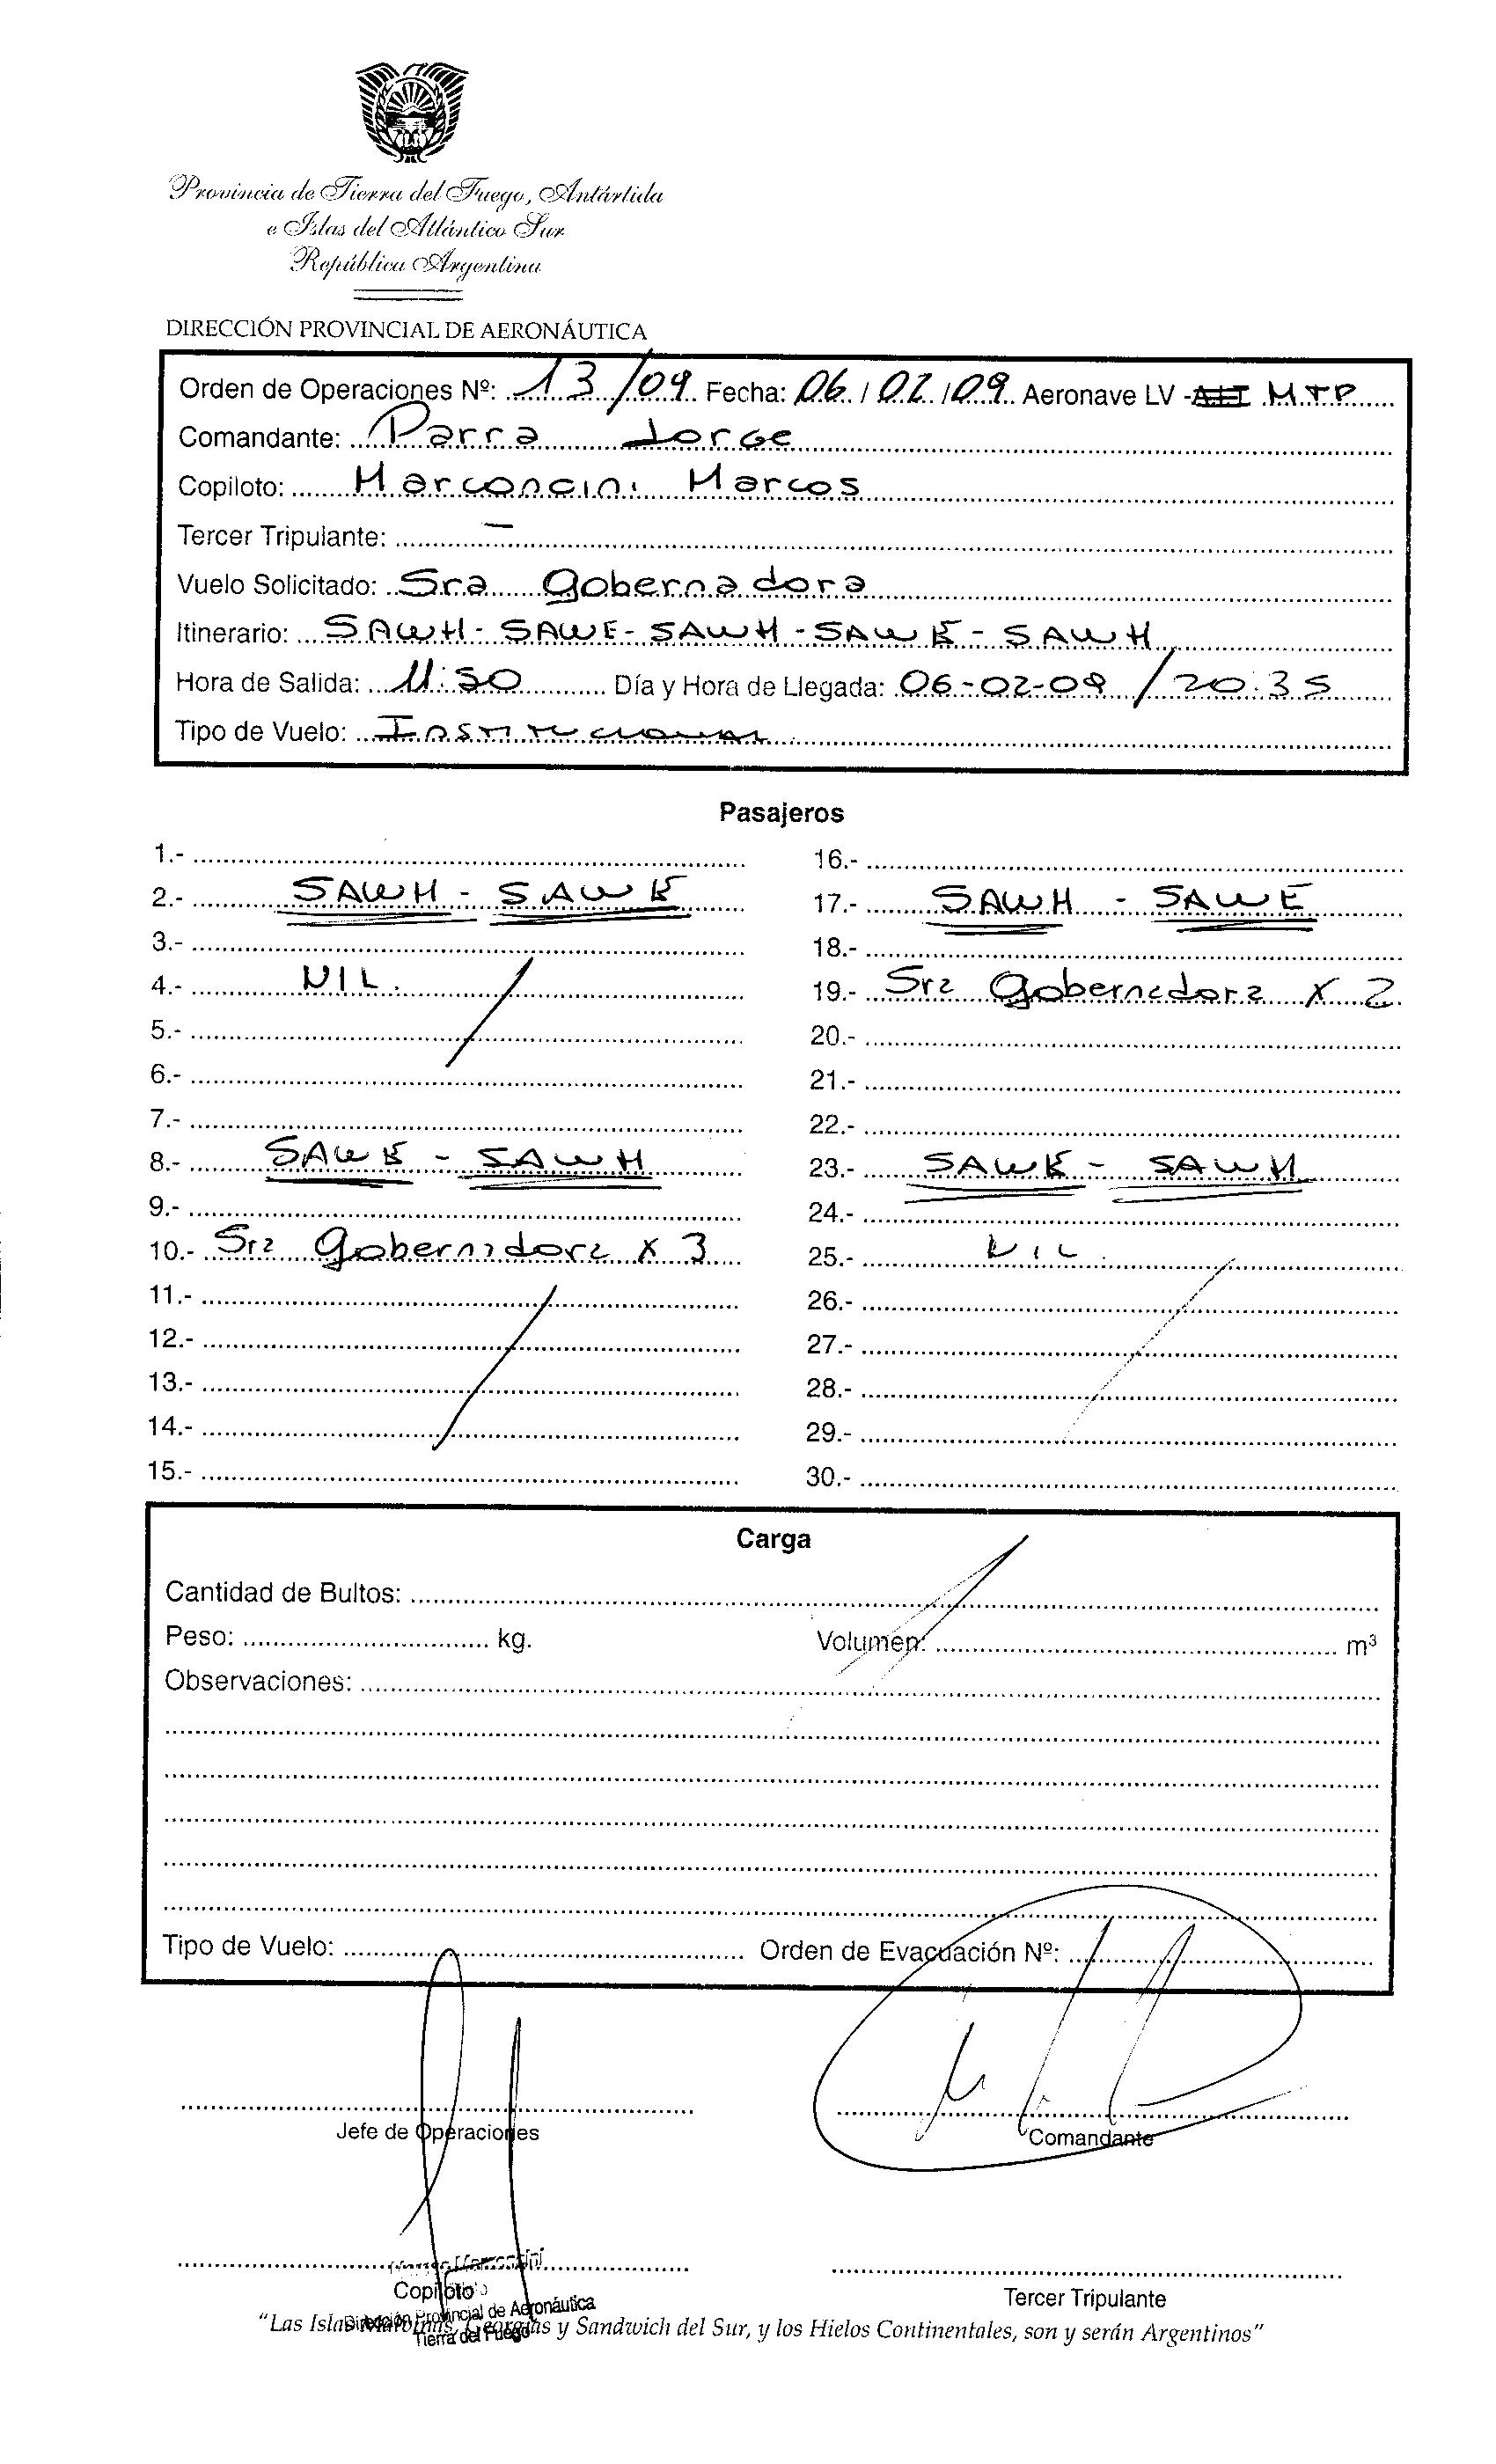 Provincia de Tierra del Fuego, Antártida
e Islas del Atlántico Sur
República Argentina
DIRECCIÓN PROVINCIAL DE AERONÁUTICA
Orden de Operaciones Nº: 13/09 Fecha: 06/02/09 Aeronave LV - MTP
Comandante: Parra Jorge
Copiloto: Marconcini Marcos
Tercer Tripulante: –
Vuelo Solicitado: Sra Gobernadora
Itinerario: SAWH-SAWE-SAWH-SAWE-SAWH
Hora de Salida: 11:50 Día y Hora de Llegada: 06-02-09 / 20:35
Tipo de Vuelo: Institucional.
Pasajeros
1.-
2.- SAWH - SAWE
3.-
4.- NIL.
5.-
6.-
7.-
8.- SAWE - SAWH
9.-
10.- Sra Gobernadora x 3
11.-
12.-
13.-
14.-
15.-
16.-
17.- SAWH - SAWE
18.-
19.- Sra Gobernadora x 2
20.-
21.-
22.-
23.- SAWE - SAWH
24.-
25.- NIL.
26.-
27.-
28.-
29.-
30.-
Carga
Cantidad de Bultos:
Peso: kg. Volumen: m³
Observaciones:
Tipo de Vuelo: Orden de Evacuación Nº:
Jefe de Operaciones Comandante
Marcos Marconcini
Copiloto Tercer Tripulante
Dirección Provincial de Aeronáutica
Tierra del Fuego
"Las Islas Malvinas, Georgias y Sandwich del Sur, y los Hielos Continentales, son y serán Argentinos"